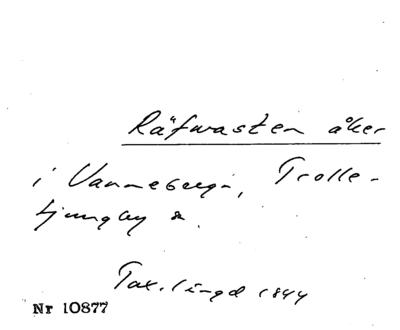 Räfwasten åker
i Vanneberga, Trolle-
ljungby s.
Tax.längd 1844
Nr 10877